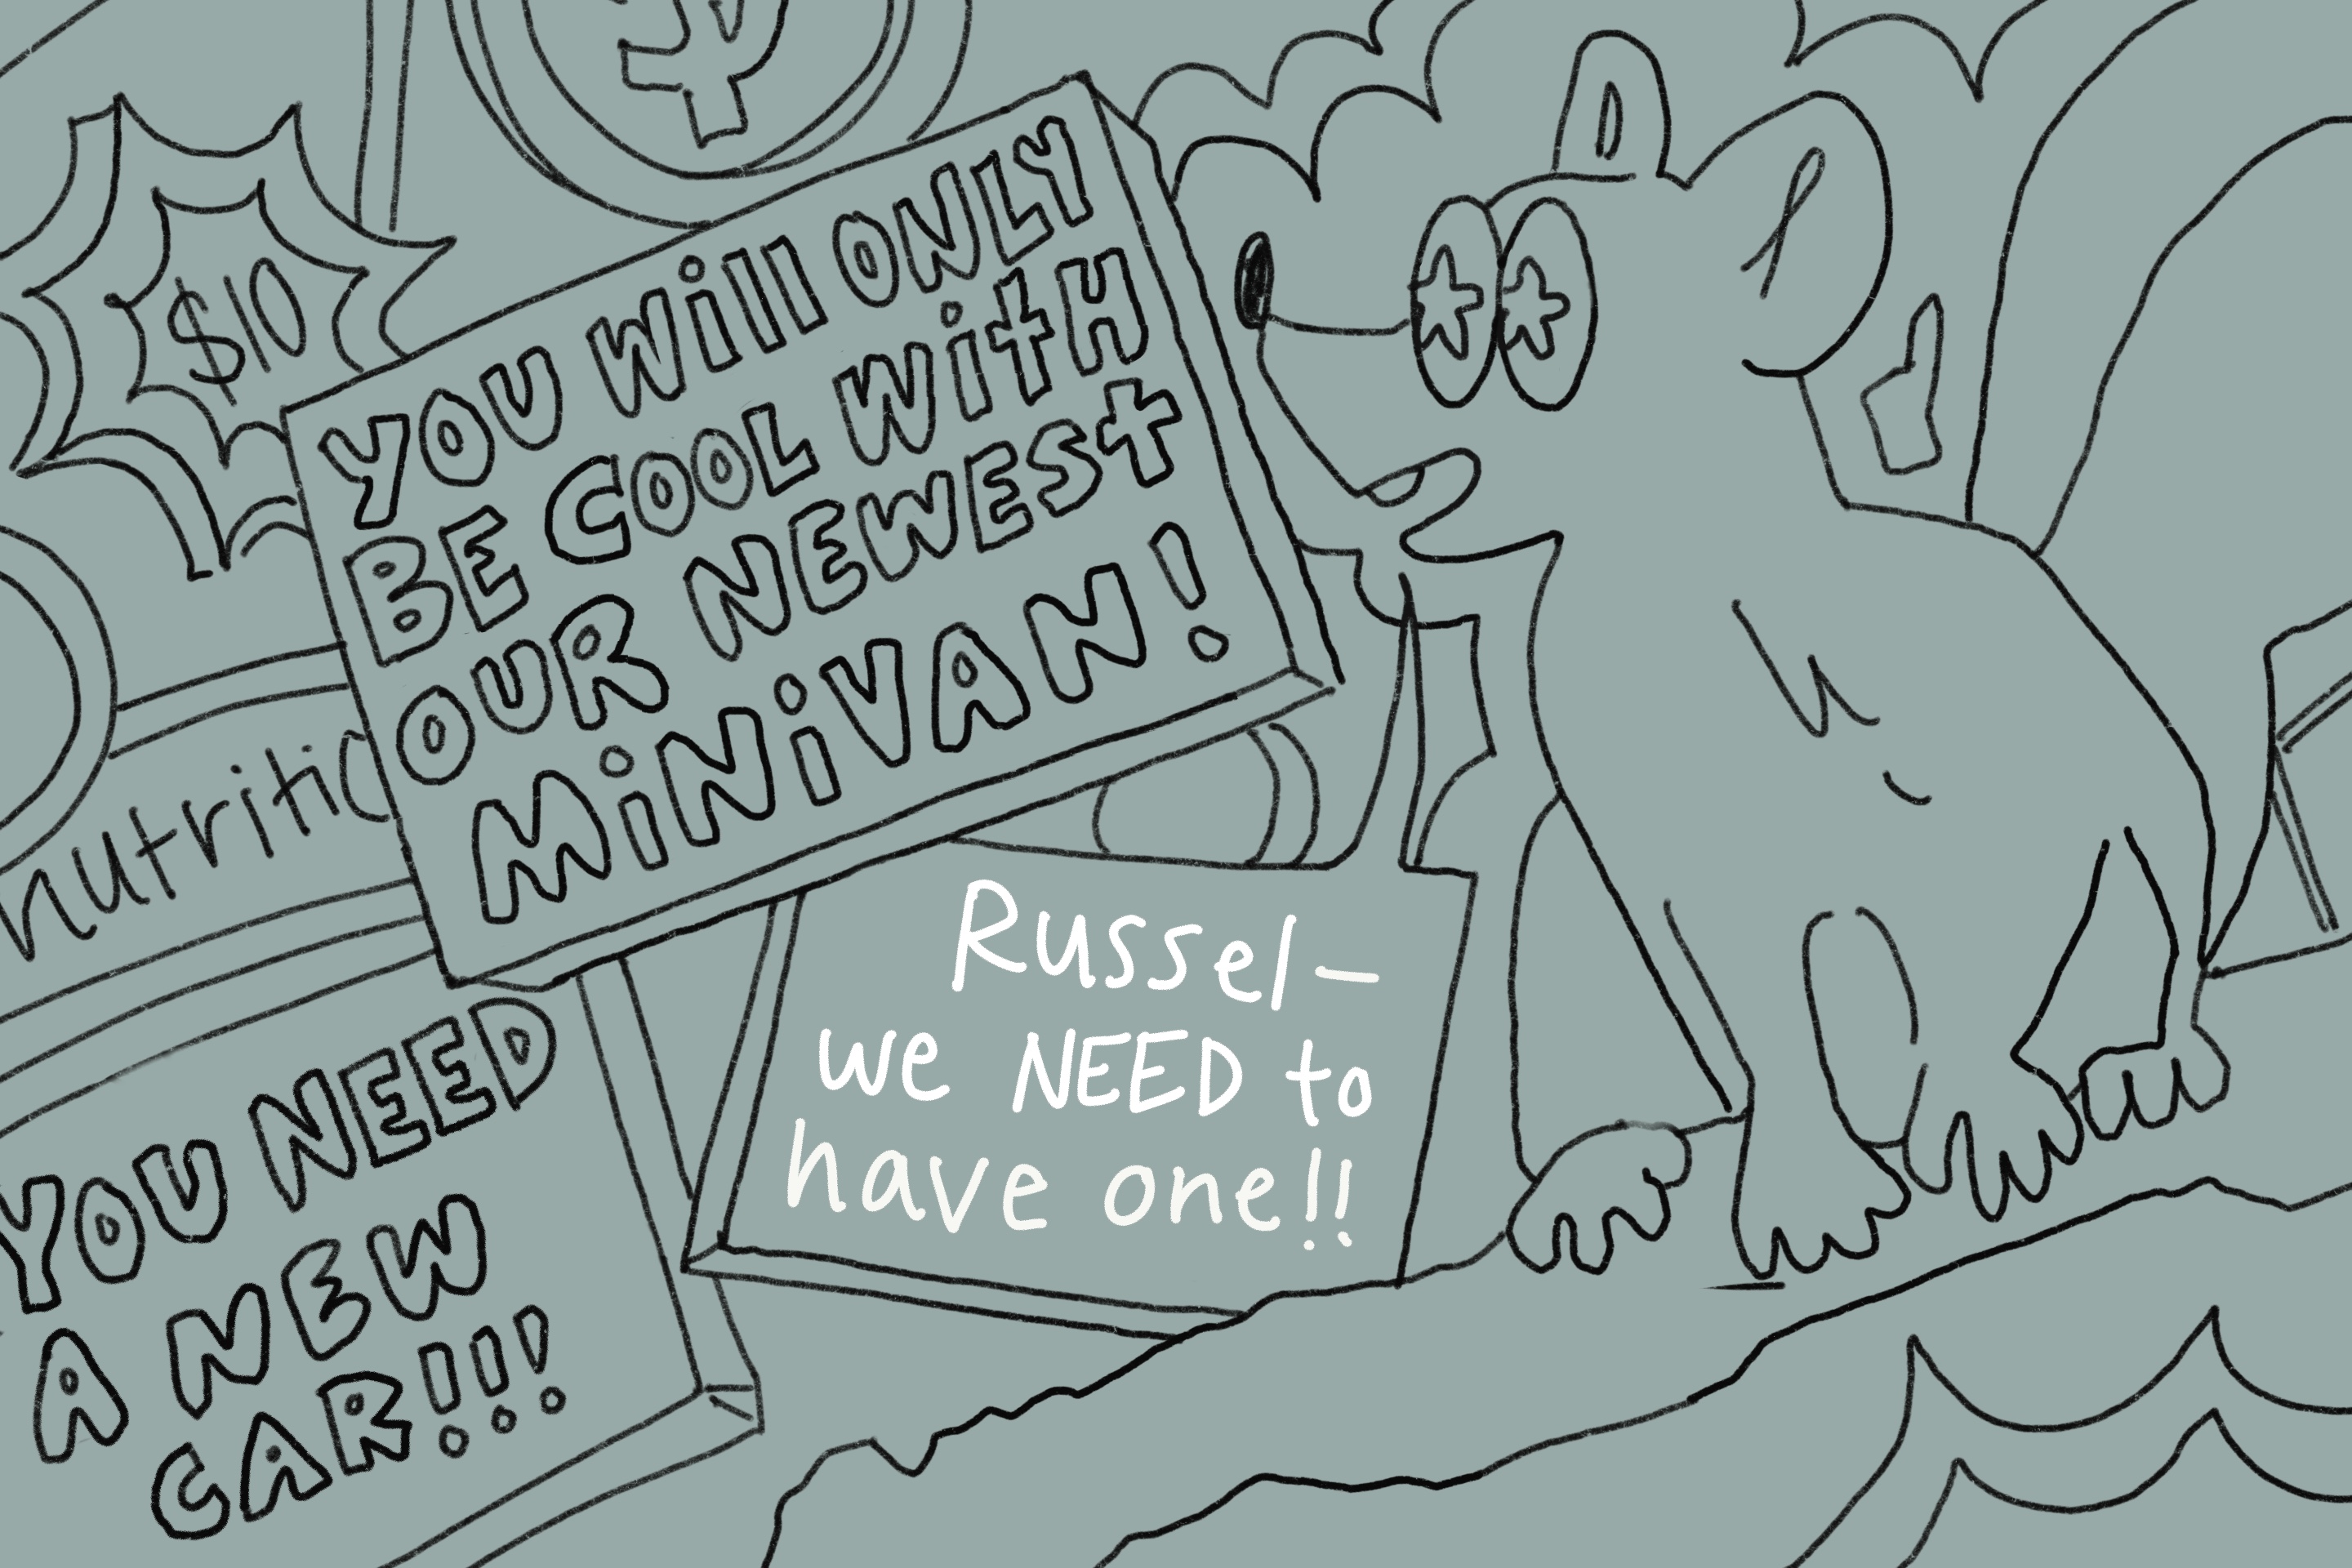 $
$10
YOU Will ONLY
BE COOL WiTH
OUR NEWEST
MiNiVAN!
nutritio
YOU NEED
A NEW
CAR!!!
Russel-
we NEED to
have one!!